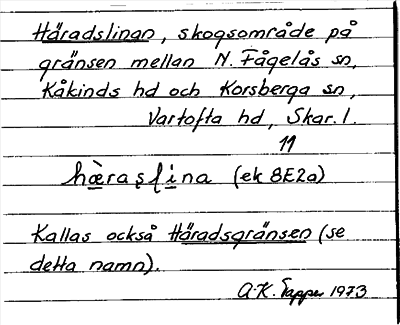 Häradslinan, skogsområde på
gränsen mellan N. Fågelås sn,
Kåkinds hd och Korsberga sn,
Vartofta hd, Skar. l.
11
hæ̀raʂḷina (ek 8E2a)
Kallas också Häradsgränsen (se
detta namn).
A-K. Tapper 1973